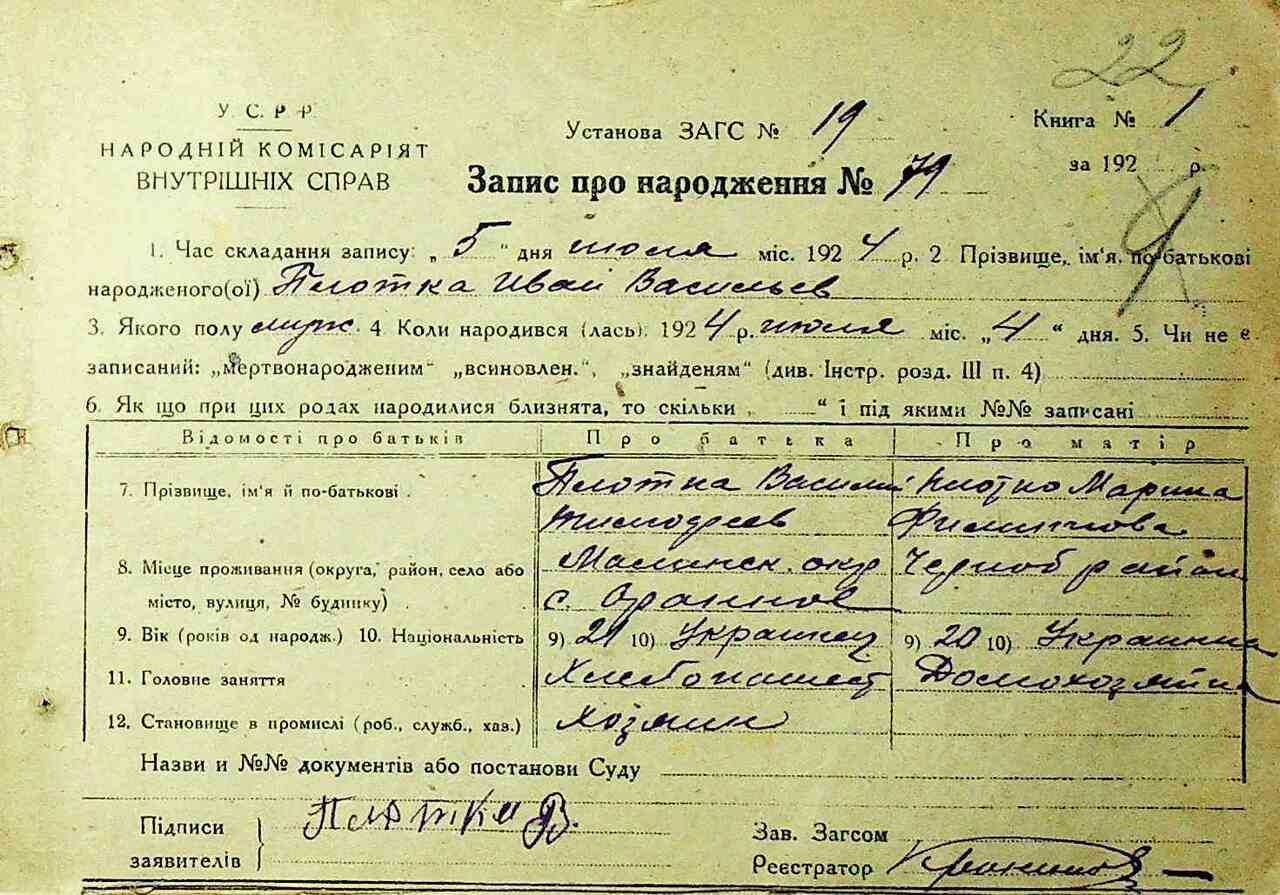 22
У. С. Р. Р.
НАРОДНІЙ КОМІСАРІЯТ
ВНУТРІШНІХ СПРАВ
Установа ЗАГС № 19
Книга № 1
за 192 р.
Запис про народження № 79
1. Час складання запису: „ 5 " дня июля міс. 192 4 р. 2 Прізвище, ім'я, по-батькові
народженого(ої) Плотка Иван Васильев
3. Якого полу муж. 4 Коли народився (лась): 192 4 р. июля міс. „ 4 " дня. 5. Чи не є
записаний: „мертвонародженим" „всиновлен.", „знайденям" (див. Інстр. розд. III п. 4)
6. Як що при цих родах народилися близнята, то скільки „ " і під якими №№ записані
Відомості про батьків Про батька Про матір
7. Прізвище, ім'я й по-батькові . Плотка Василий Плотко Марина
Тимофеев
8. Місце проживання (округа, район, село або Малинск. окр Черноб район
місто, вулиця, № будинку) . с. Оранное
9. Вік (років од народж.) 10. Національність 9) 21 10) Украинец 9) 20 10) Украинка
11. Головне заняття Хлебопашест Домохозяйка
12. Становище в промислі (роб., служб., хаз.) Хозяин
Назви и №№ документів або постанови Суду
Підписи Плотка В.
заявителів
Зав. Загсом
Реєстратор